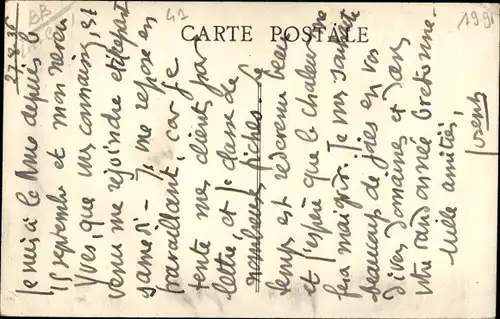 CARTE POSTALE
41
1991
27.8.36
Je suis à la depuis le
15 septembre et mon neveu
Yves, que vous connaissez, est
venu me rejoindre et repart
samedi - Je me repose en
travaillant, car je
tente mes clients par
lettre, et je classe de
nombreuses fiches. Le
temps est redevenu beau
et j'espère que la chaleur me
fera maigrir. Je vous souhaite
beaucoup de joies en vos
divers domaines et dans
votre randonnée bretonne.
Mille amitiés,